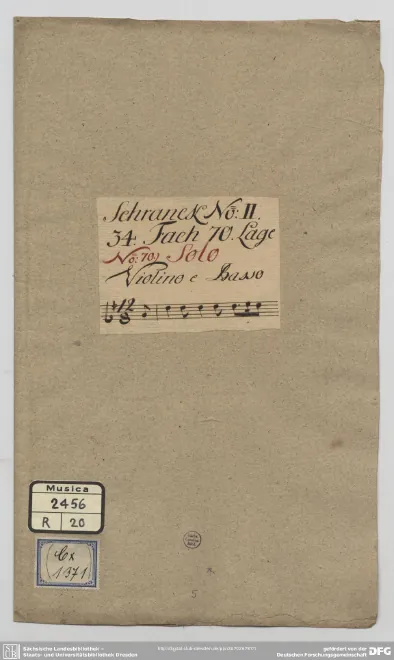 Schranck No: II.
34. Fach 70. Lage
No: 70) Solo
Violino e Basso
12
8
Musica
2456
R 20
Cx
1371
5
SLUB
Sächsische Landesbibliothek –
Staats- und Universitätsbibliothek Dresden
gefördert von der
Deutschen Forschungsgemeinschaft
DFG